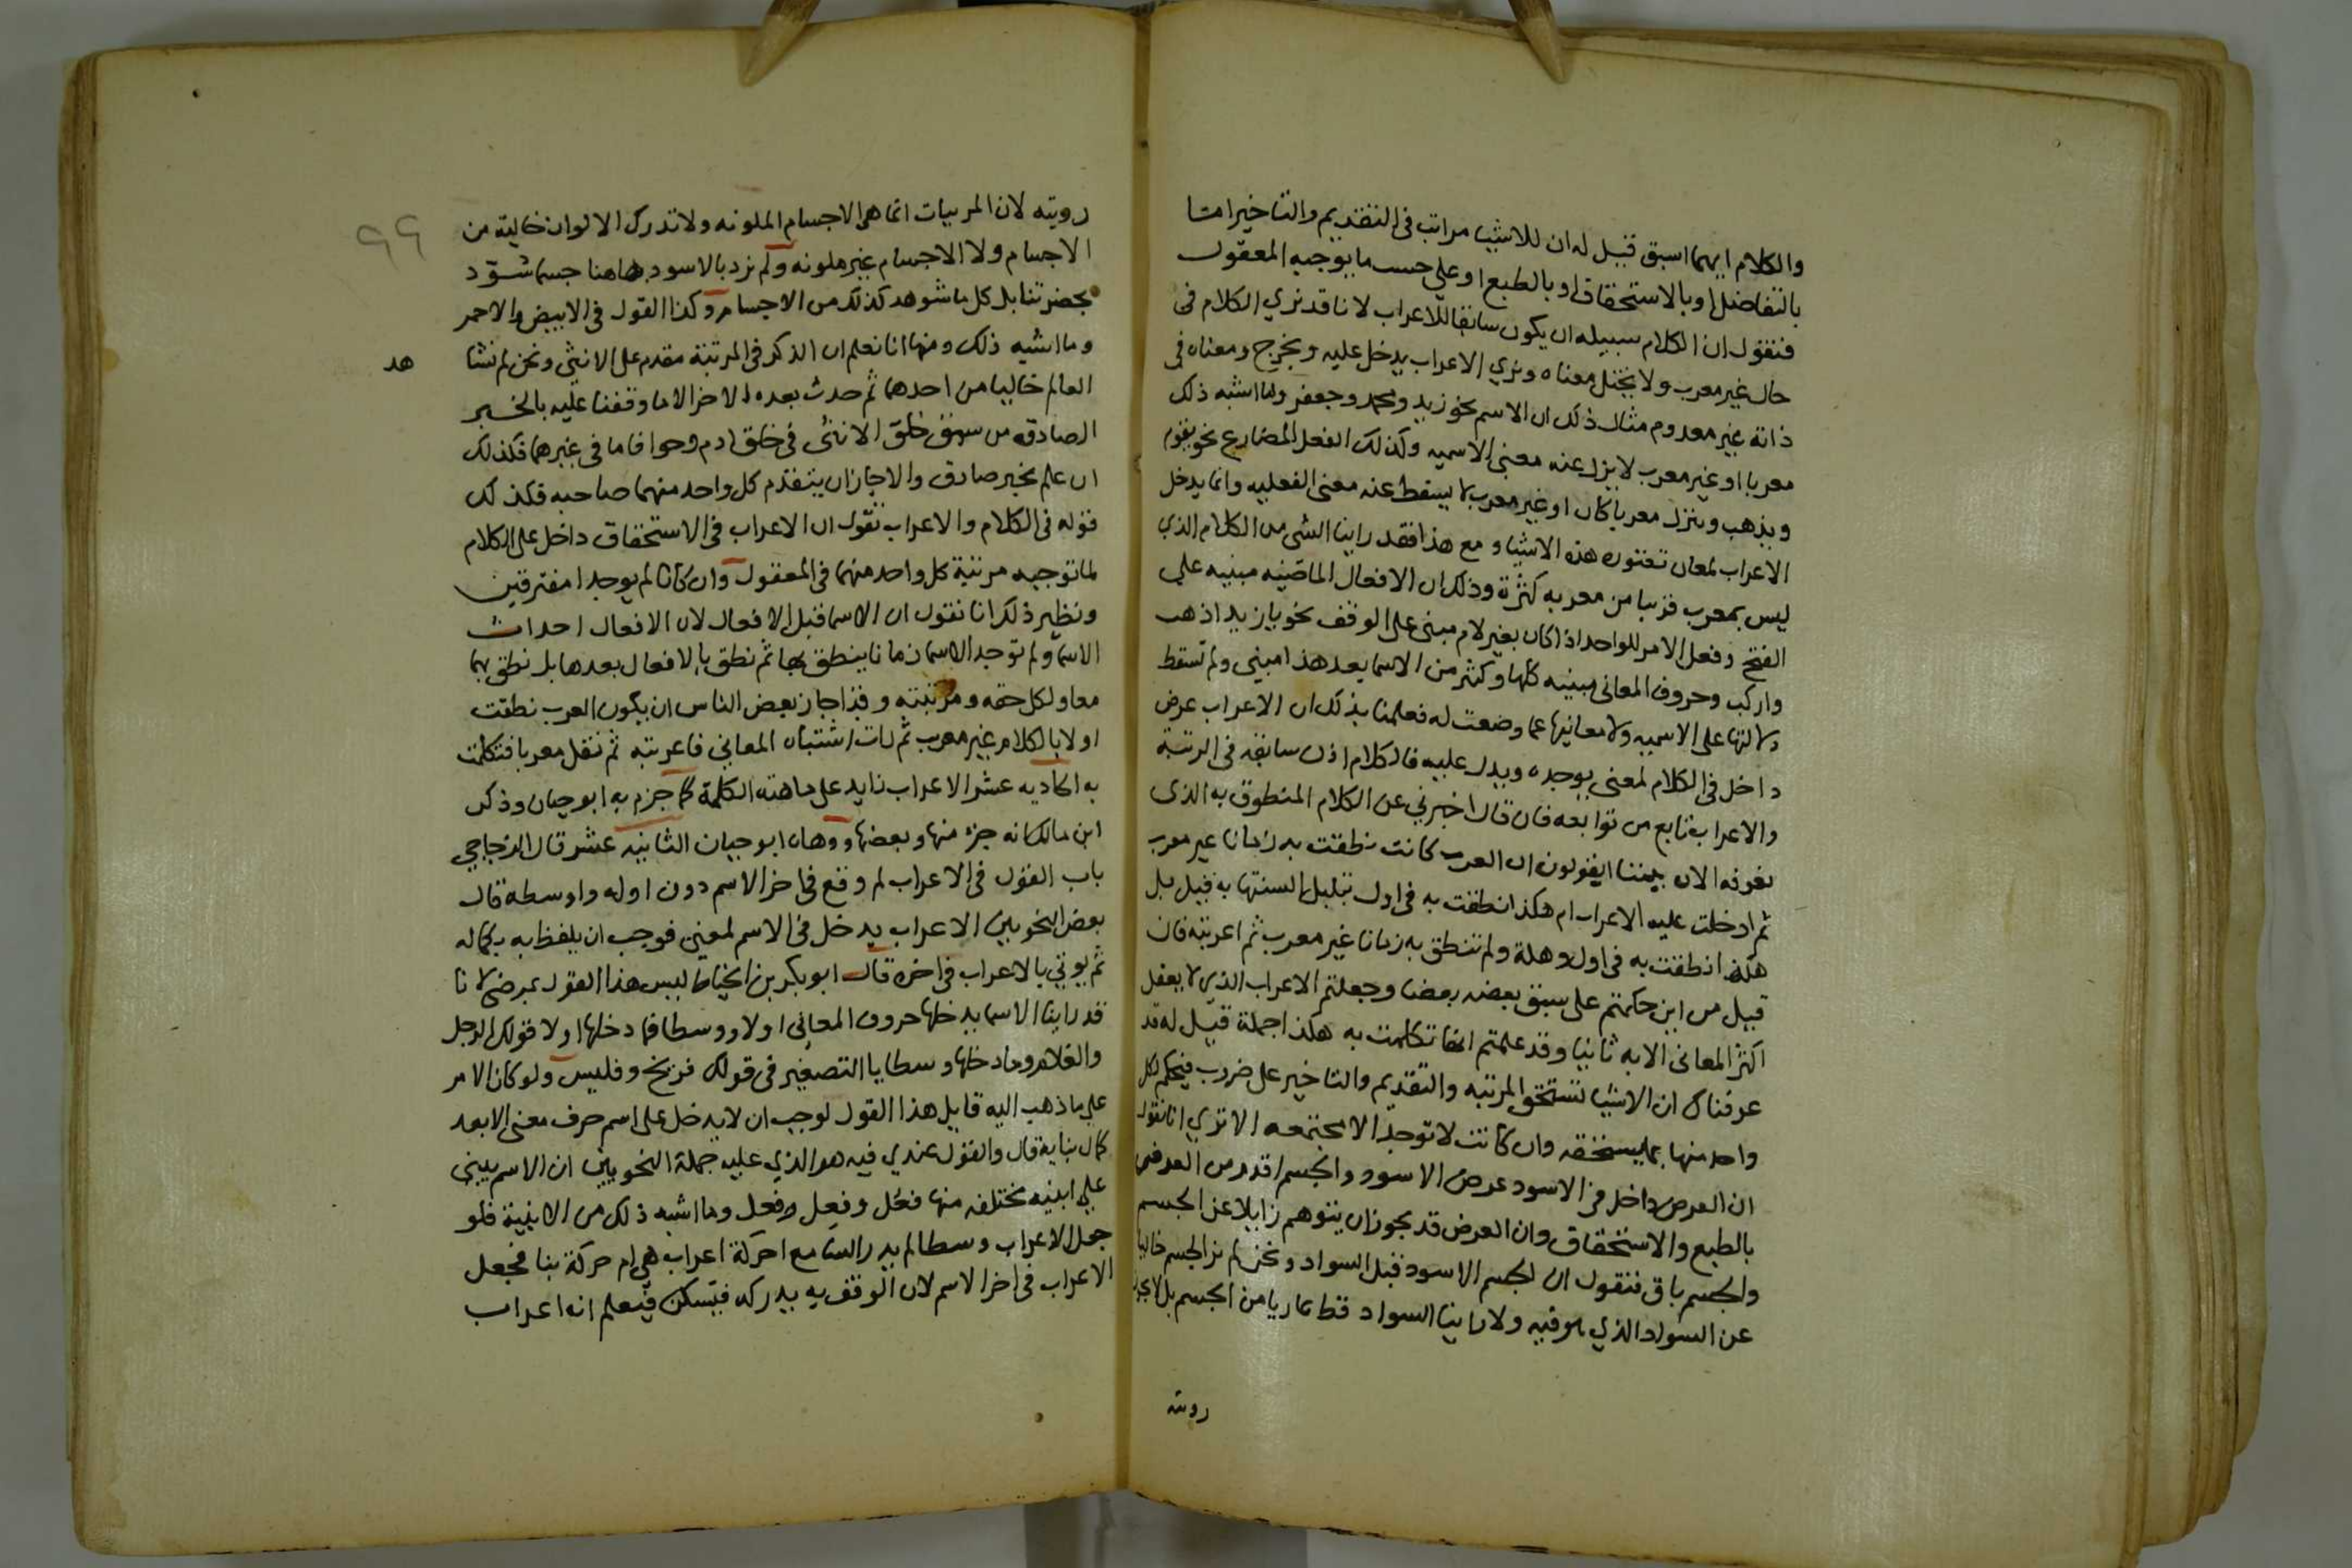 والكلام ايهما اسبق قيل له ان للاشيا مراتب فى التقديم والتاخير اما
بالتفاضل او بالاستحقاق او بالطبع او على حسب ما يوجبه المعقول
فنقول ان الكلام سبيله ان يكون سابقا للاعراب لانا قد نري الكلام فى
حال غير معرب ولا يختل معناه ونري الاعراب يدخل عليه ويخرج ومعناه فى
ذاته غير معدوم مثال ذلك ان الاسم نحو زيد ومحمد وجعفر وما اشبه ذلك
معربا او غير معرب لا يزل عنه معنى الاسميه وكذلك الفعل المضارع نحو يقوم
ويذهب وينزل معربا كان او غير معرب لا يسقط عنه معنى الفعليه وانما يدخل
الاعراب لمعان تعتوره هذه الاشيا و مع هذا فقد راينا الشى من الكلام الذي
ليس بمعرب قريبا من معربه كثرة وذلك ان الافعال الماضيه مبنيه على
الفتح وفعل الامر للواحد اذا كان بغير لام مبنى على الوقف نحو يا زيد اذهب
واركب وحروف المعانى مبنيه كلها وكثر من الاسما بعد هذا مبنى ولم تسقط
دلالتها على الاسميه ولا معانيها عما وضعت له فعلمنا بذلك ان الاعراب عرض
داخل فى الكلام لمعنى يوجده ويدل عليه فالكلام اذن سابقه فى الرتبة
والاعراب تابع من توابعه فان قال اخبرني عن الكلام المنطوق به الذى
نعرفه الان بيننا ايقولون ان العرب كانت نطقت به زمانا غير معرب
ثم ادخلت عليه الاعراب ام هكذا نطقت به فى اول تبلبل السنتها به قيل بل
هكذا نطقت به فى اول وهلة ولم تنطق به زمانا غير معرب ثم اعربته فان
قيل من اين حكمتم على سبق بعضه بعضا وجعلتم الاعراب الذي لا يعقل
اكثر المعانى الا به ثانيا وقد علمتم انها تكلمت به هكذا جملة قيل له قد
عرفناك ان الاشيا تستحق المرتبه والتقديم والتاخير على ضروب فيحكم لكل
واحد منها بما يستحقه وان كانت لا توجد الا مجتمعه الا تري انا نقول
ان العرض داخل فى الاسود عرض الاسود والجسم اقدم من العرض
بالطبع والاستحقاق وان العرض قد يجوز ان يتوهم زايلا عن الجسم
والجسم باق فنقول ان الجسم الاسود قبل السواد ونحن لم نر الجسم خاليا
عن السواد الذي هو فيه ولا راينا السواد قط عاريا من الجسم بل لا يجوز
رويته
٩٩
رويته لان المربيات انما هى الاجسام الملونه ولا تدرك الالوان خالية من
الاجسام ولا الاجسام غير ملونه ولم نرد بالاسود هاهنا جسما سود
بحضرتنا بل كل ما شوهد كذلك من الاجسام وكذا القول فى الابيض والاحمر
وما اشبه ذلك ومنها انا نعلم ان الذكر فى المرتبة مقدم على الانثى ونحن لم نشا
هد
العالم خاليا من احدهما ثم حدث بعده الاخر الا ما وقفنا عليه بالخبر
الصادق من سبق خلق الانثى فى خلق ادم وحوا فاما فى غيرهما فكذلك
ان علم بخبر صادق والا جاز ان يتقدم كل واحد منهما صاحبه فكذلك
قوله فى الكلام والاعراب نقول ان الاعراب فى الاستحقاق داخل على الكلام
لما توجبه مرتبة كل واحد منهما فى المعقول وان كانا لم يوجدا مفترقين
ونظير ذلك انا نقول ان الاسما قبل الافعال لان الافعال احداث
الاسما ولم توجد الاسما زمانا ينطق بها ثم نطق بالافعال بعدها بل نطق بهما
معا ولكل حقه ومرتبته وقد اجاز بعض الناس ان يكون العرب نطقت
اولا بالكلام غير معرب ثم رات اشتباه المعاني فاعربته ثم نقل معربا فتكلمت
به الحاديه عشر الاعراب زايد على ماهية الكلمة كما جزم به ابو حيان وذكر
ابن مالك انه جزء منها وبعضها ووهاه ابو حيان الثانيه عشر قال الزجاجي
باب القول فى الاعراب لم وقع فى اخر الاسم دون اوله واوسطه قال
بعض النحويين الاعراب يدخل فى الاسم لمعنى فوجب ان يلفظ به بكماله
ثم يوتي بالاعراب فى اخره قال ابو بكر بن الخياط ليس هذا القول بمرضى لانا
قد راينا الاسما يدخلها حروف المعانى اولا ووسطا فما دخلها اولا قولك الرجل
والغلام وما دخلها وسطا يا التصغير فى قولك فريخ وفليس ولو كان الامر
على ما ذهب اليه قايل هذا القول لوجب ان لا يدخل على اسم حرف معنى الا بعد
كمال بنايه قال والقول عندي فيه هو الذي عليه جملة النحويين ان الاسم يبنى
على ابنيه مختلفه منها فعُل وفعِل وفعل وما اشبه ذلك من الابنية فلو
جعل الاعراب وسطا لم يدر السامع احركة اعراب هى ام حركة بنا فجعل
الاعراب فى اخر الاسم لان الوقف به يدركه فيسكن فيعلم انه اعراب